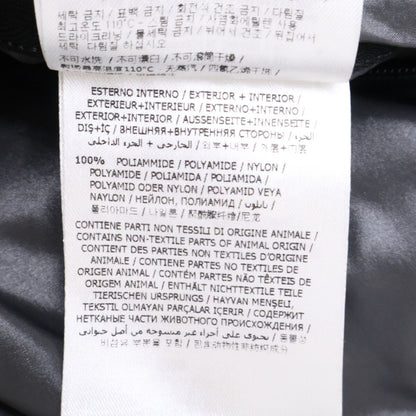 세탁 금지 / 표백 금지 / 회전식 건조 금지 / 다림질
드라이크리닝 /
세탁 다림질 금지
不可水洗 / 不可漂白 / 不可滚筒干燥 /
最高温度110°C
ESTERNO INTERNO / EXTERIOR + INTERIOR /
EXTERIEUR+INTERIEUR / EXTERIOR +INTERIOR/
EXTERIOR+INTERIOR / AUSSENSEITE+INNENSEITE /
DIŞ+İÇ / ВНЕШНЯЯ+ВНУТРЕННЯЯ СТОРОНЫ /
100% POLIAMMIDE / POLYAMIDE / NYLON /
POLYAMIDE / POLIAMIDA / POLIAMIDA /
POLYAMID ODER NYLON / POLYAMID VEYA
NAYLON / НЕЙЛОН, ПОЛИАМИД / نايلون /
폴리아마드 / 나일론 / 聚酰胺纤维/尼龙
CONTIENE PARTI NON TESSILI DI ORIGINE ANIMALE /
CONTAINS NON-TEXTILE PARTS OF ANIMAL ORIGIN /
CONTIENT DES PARTIES NON TEXTILES D'ORIGINE
ANIMALE / CONTIENE PARTES NO TEXTILES DE
ORIGEN ANIMAL / CONTÉM PARTES NÃO TÊXTEIS DE
ORIGEM ANIMAL / ENTHÄLT NICHTTEXTILE TEILE
TIERISCHEN URSPRUNGS / HAYVAN MENŞELİ,
TEKSTİL OLMAYAN PARÇALAR İÇERİR / СОДЕРЖИТ
НЕТКАНЫЕ ЧАСТИ ЖИВОТНОГО ПРОИСХОЖДЕНИЯ /
يحتوي على أجزاء غير منسوجة من أصل حيواني / 동물성
비섬유 부분 포함 / 包含动物性非纺织